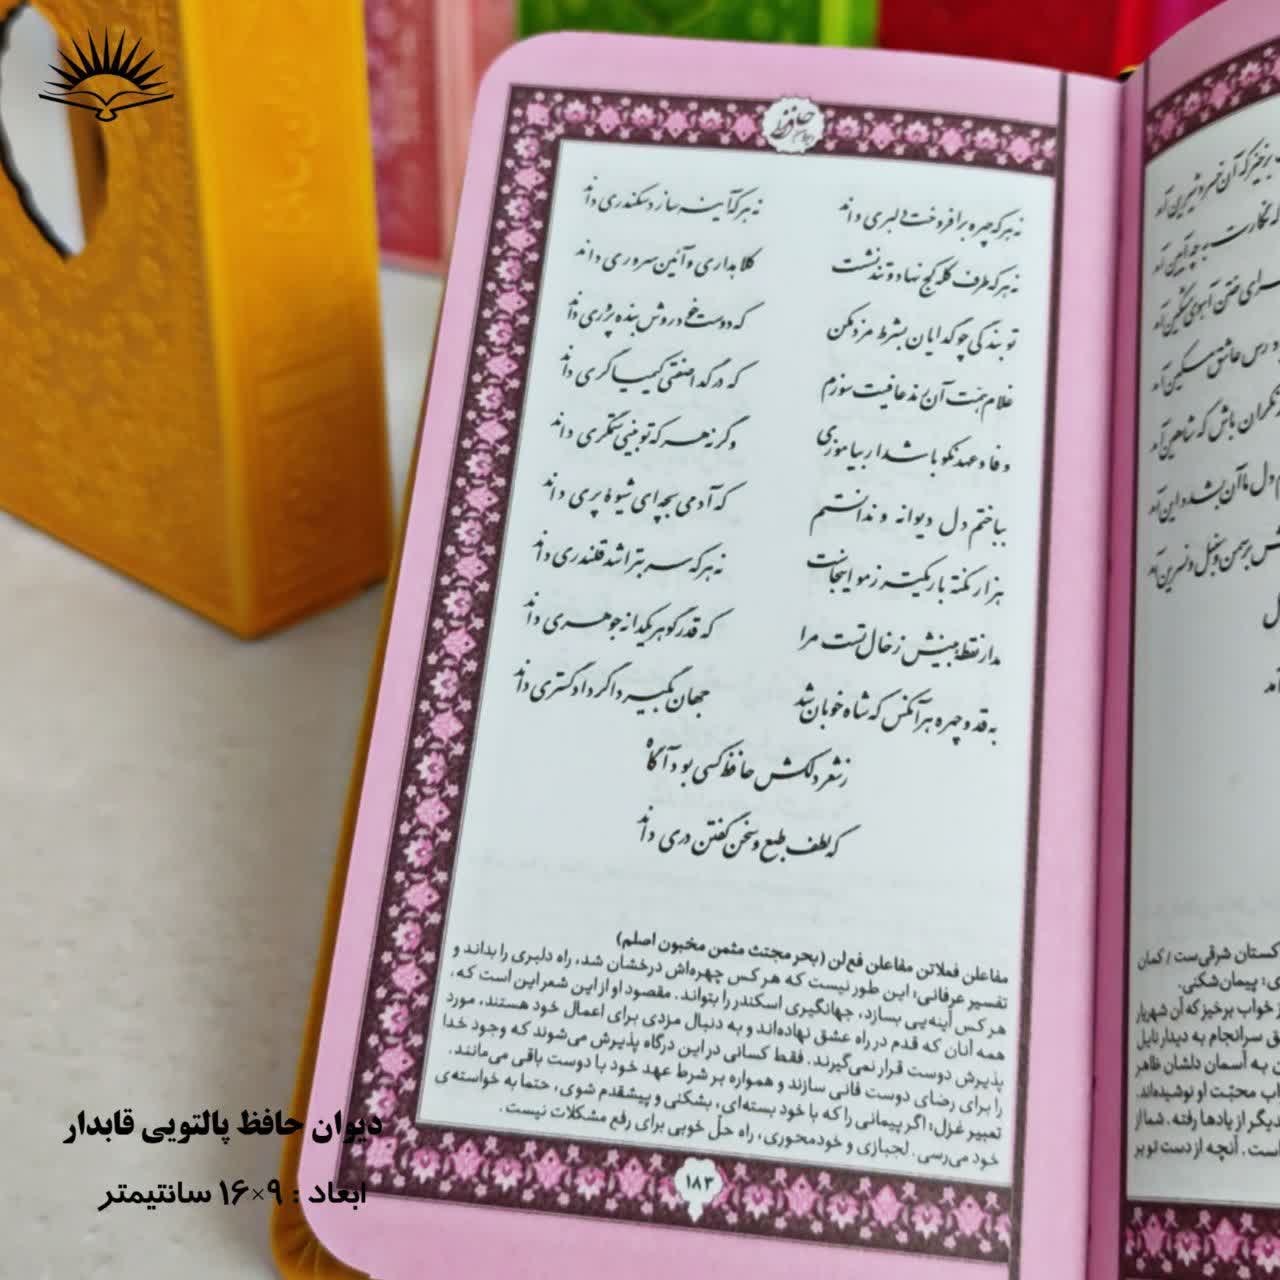 دیوان حافظ
نه هر که چهره برافروخت دلبری داند
نه هر که آینه سازد سکندری داند
نه هر که طرف کله کج نهاد و تند نشست
کلاهداری و آئین سروری داند
تو بندگی چو گدایان بشرط مزد مکن
که دوست خود روش بنده پروری داند
غلام همت آن رند عافیت سوزم
که در گدا صفتی کیمیاگری داند
وفا و عهد نکو باشد ار بیاموزی
وگرنه هر که تو بینی ستمگری داند
بباختم دل دیوانه و ندانستم
که آدمی بچه‌ای شیوهٔ پری داند
هزار نکتهٔ باریکتر ز مو اینجاست
نه هر که سر بتراشد قلندری داند
مدار نقطهٔ بینش ز خال تست مرا
که قدر گوهر یکدانه جوهری داند
به قد و چهره هر آنکس که شاه خوبان شد
جهان بگیرد اگر دادگستری داند
ز شعر دلکش حافظ کسی بود آگاه
که لطف طبع و سخن گفتن دری داند
مفاعلن فعلاتن مفاعلن فع‌لن (بحر مجتث مثمن مخبون اصلم)
تفسیر عرفانی: این طور نیست که هر کس چهره‌اش درخشان شد، راه دلبری را بداند و
هر کس آینه‌یی بسازد، جهانگیری اسکندر را بتواند. مقصود او از این شعر این است که،
همه آنان که قدم در راه عشق نهاده‌اند و به دنبال مزدی برای اعمال خود هستند، مورد
پذیرش دوست قرار نمی‌گیرند. فقط کسانی در این درگاه پذیرش می‌شوند که وجود خدا
را برای رضای دوست فانی سازند و همواره بر شرط عهد خود با دوست باقی می‌مانند.
تعبیر غزل: اگر پیمانی را که با خود بسته‌ای، بشکنی و پیشقدم شوی، حتما به خواسته‌ی
خود می‌رسی. لجبازی و خودمحوری، راه حلّ خوبی برای رفع مشکلات نیست.
۱۸۳
برخیز که آن خسرو شیرین آمد
نگران باش که شاهین آمد
کستان شرقی‌ست / کمان
پیمان‌شکنی.
خواب برخیز که آن شهریار
سرانجام به دیدار نایل
به آسمان دلشان ظاهر
محبّت او نوشیده‌اند.
دیگر از یادها رفته. شما از
است. آنچه از دست تو بر
دیوان حافظ پالتویی قابدار
ابعاد : ۹×۱۶ سانتیمتر